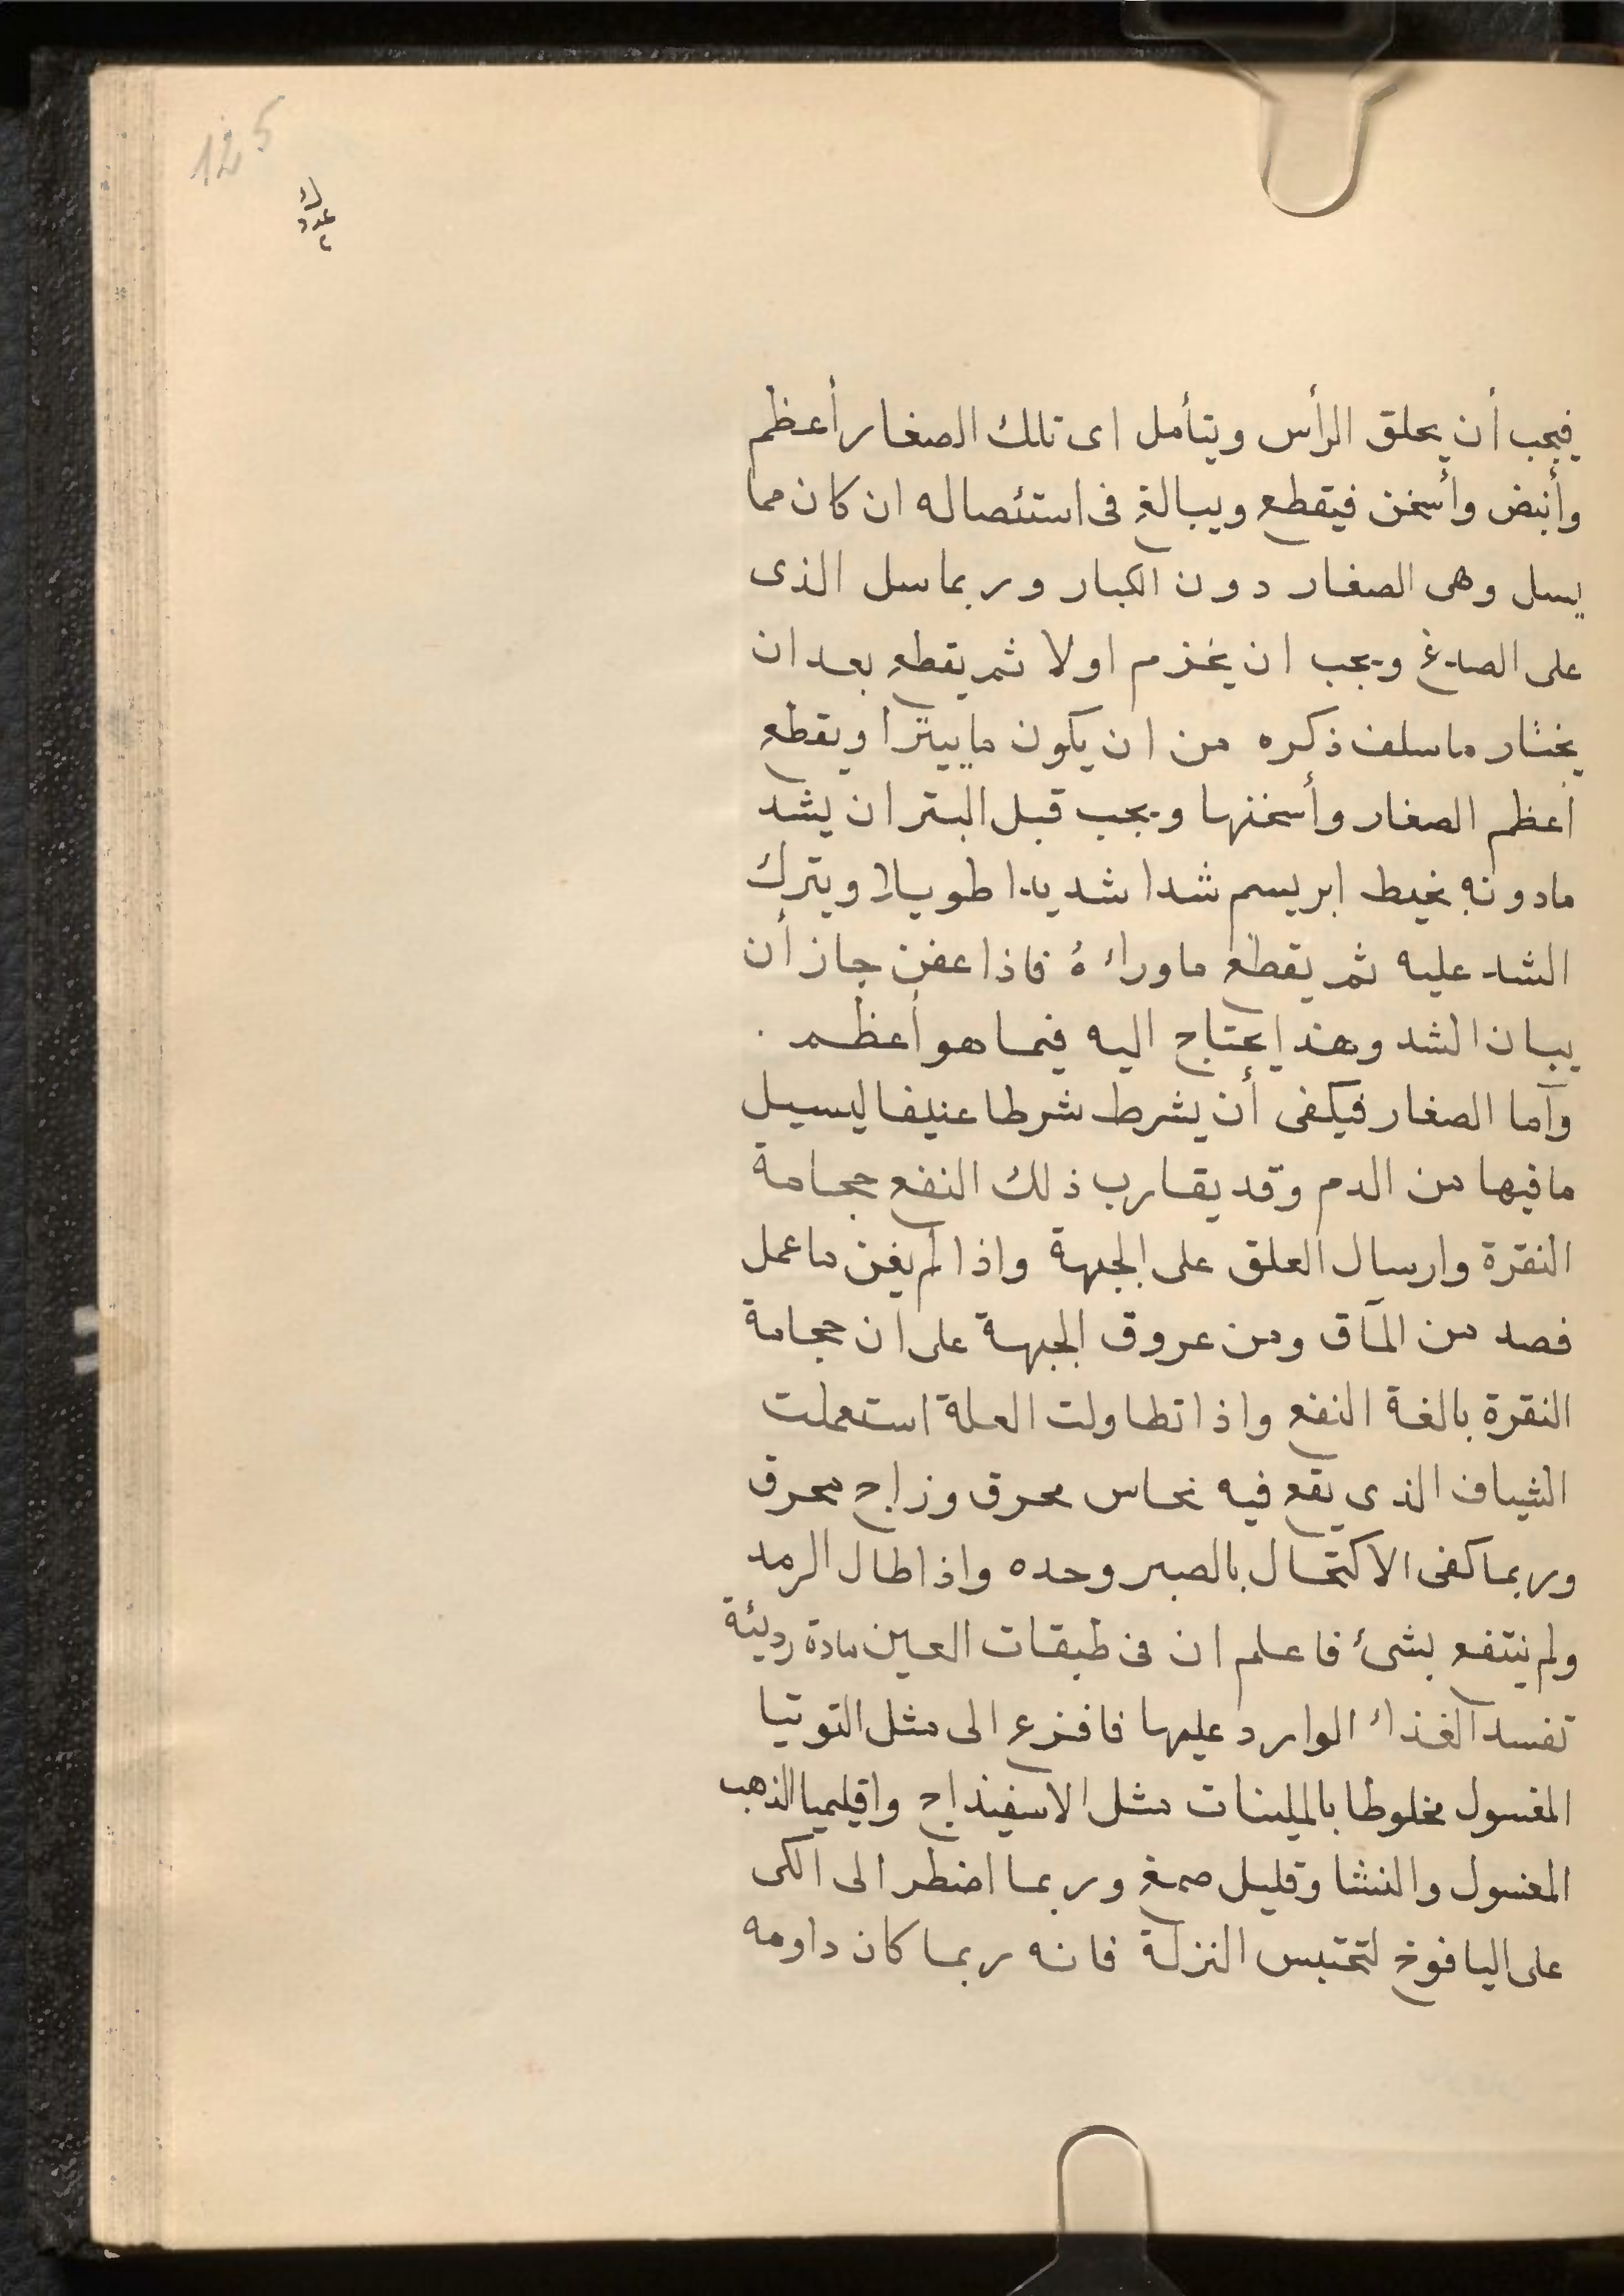 125
عدد
٢
فيجب أن يحلق الرأس ويتأمل اى تلك الصغار أعظم
وأنبض وأسخن فيقطع ويبالغ فى استئصاله ان كان مما
يسل وهى الصغار دون الكبار وربما سل الذى
على الصدغ ويجب ان يخزم اولا ثم يقطع بعد ان
يختار ما سلف ذكره من ان يكون ما يبترا ويقطع
أعظم الصغار وأسخنها ويجب قبل البتر ان يشد
مادونه بخيط ابريسم شدا شديدا طويلا ويترك
الشد عليه ثم يقطع ماوراءه فاذا عفن جاز أن
يبان الشد وهذا يحتاج اليه فيما هو أعظم .
وآما الصغار فيكفى أن يشرط شرطا عنيفا ليسيل
ما فيها من الدم وقد يقارب ذلك النفع حجامة
النقرة وارسال العلق على الجبهة واذا لم يغن ما عمل
فصد من المآق ومن عروق الجبهة على ان حجامة
النقرة بالغة النفع واذا تطاولت العلة استعملت
الشياف الذى يقع فيه نحاس محرق وزاج محرق
وربما كفى الاكتحال بالصبر وحده واذا طال الرمد
ولم ينتفع بشئ فاعلم ان فى طبقات العين مادة رديئة
تفسد الغذاء الوارد عليها فافزع الى مثل التوتيا
المغسول مخلوطا بالملينات مثل الاسفيذاج واقليميا الذهب
المغسول والنشا وقليل صمغ وربما اضطر الى الكى
على اليافوخ لتحتبس النزلة فانه ربما كان داومه